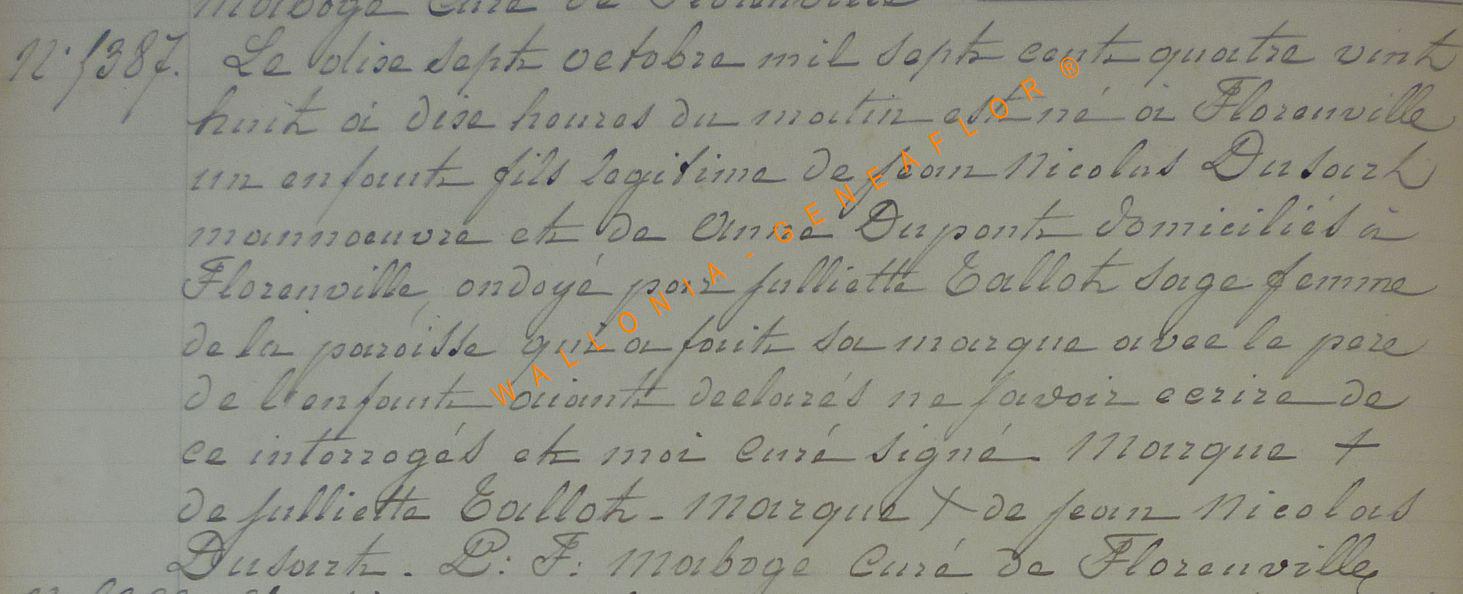 maboge Curé de Florenville
N° 1387. Le dixe sept octobre mil sept cent quatre vint
huit à dixe heures du matin est né à Florenville
un enfant fils legitime de jean Nicolas Dusart
mannoeuvre et de Anne Dupont domiciliés à
Florenville, ondoyé par julliette Tallot sage femme
de la paroisse qui a fait sa marque avec le pere
de l'enfant aiant declarés ne savoir ecrire de
ce interrogés et moi curé signé. Marque +
de julliette Tallot. Marque + de jean Nicolas
Dusart. P: F: maboge Curé de Florenville
WALLONIA - GENEAFLOR ®